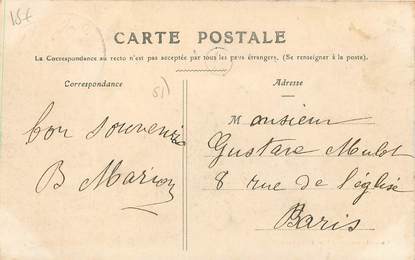 CARTE POSTALE
La Correspondance au recto n'est pas acceptée par tous les pays étrangers. (Se renseigner à la poste).
Correspondance
Adresse
bon souvenir
B Marion
Monsieur
Gustave Mulot
8 rue de l'église
Paris